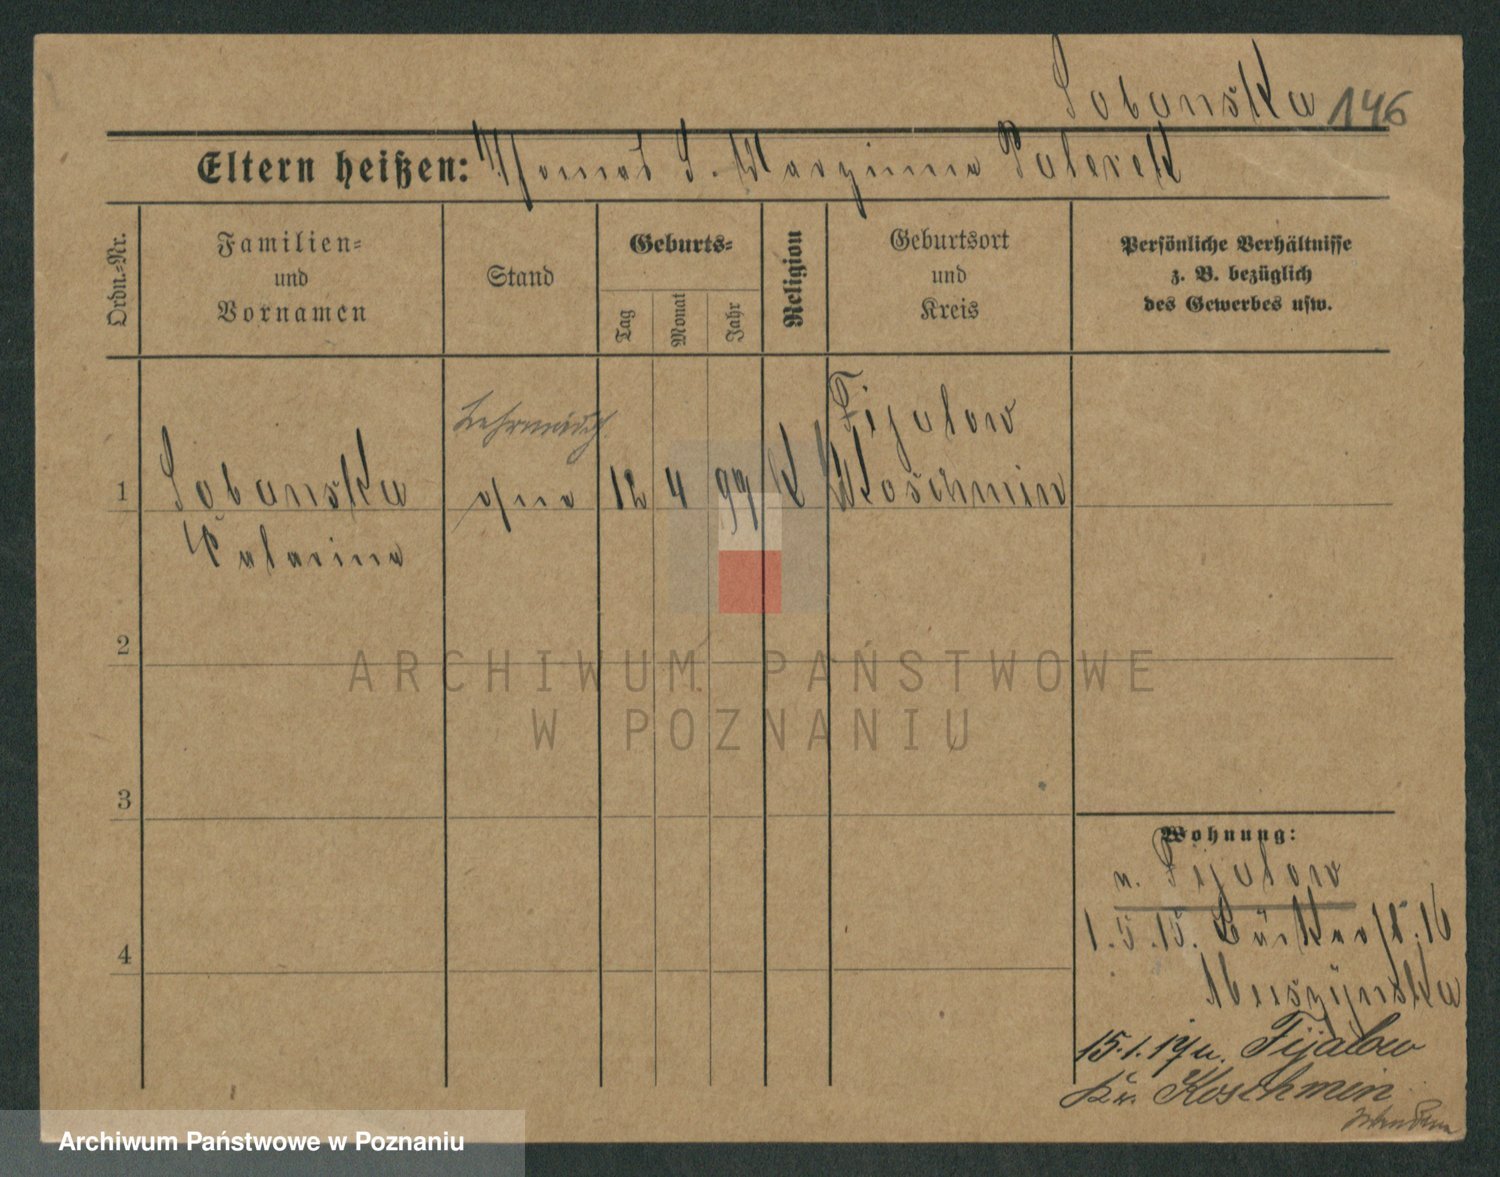 Sobanska 146
Eltern heißen: Thomas S. Marzinna Ratereck
Ordn.-Nr.
Familien-
und
Vornamen
Stand
Geburts-
Tag
Monat
Jahr
Religion
Geburtsort
und
Kreis
Persönliche Verhältnisse
z. B. bezüglich
des Gewerbes usw.
Lehrmädch.
Fijalow
1 Sobanska ohne 12 4 99 K Koschmin
Katarina
2
3
4
Wohnung:
n. Fijalow
1.5.15. 16
15.1.17 n. Fijalow
Kr. Koschmin
ARCHIWUM PAŃSTWOWE
W POZNANIU
Archiwum Państwowe w Poznaniu